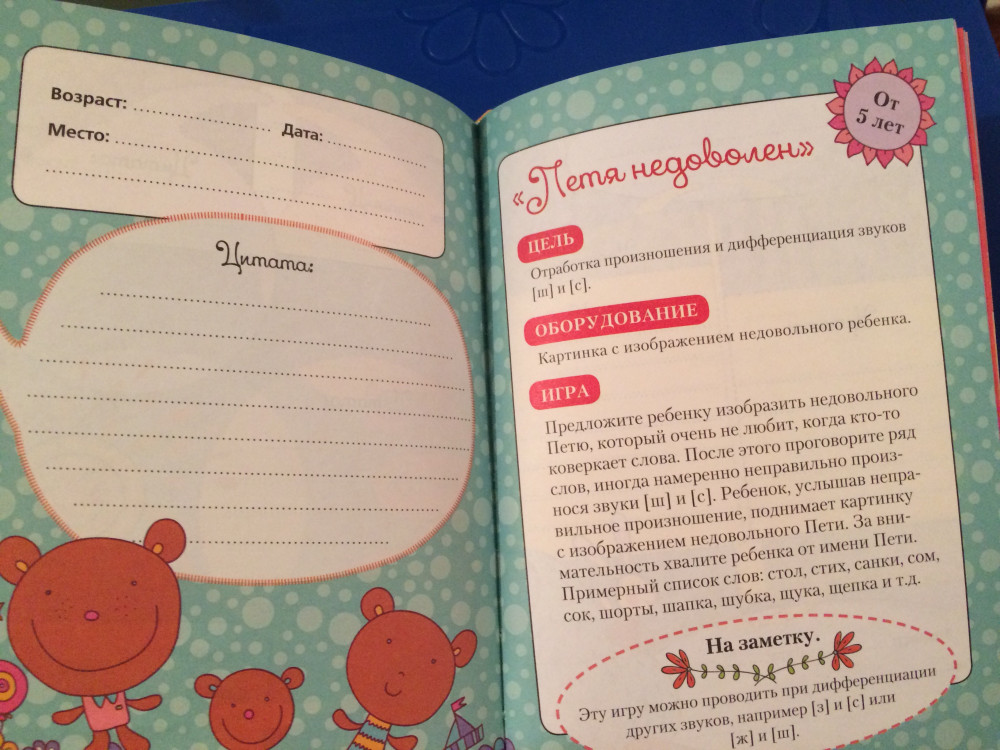 Возраст: Дата:
Место:
Цитата:
От
5 лет
«Петя недоволен»
ЦЕЛЬ
Отработка произношения и дифференциация звуков
[ш] и [с].
ОБОРУДОВАНИЕ
Картинка с изображением недовольного ребенка.
ИГРА
Предложите ребенку изобразить недовольного
Петю, который очень не любит, когда кто-то
коверкает слова. После этого проговорите ряд
слов, иногда намеренно неправильно произ-
нося звуки [ш] и [с]. Ребенок, услышав непра-
вильное произношение, поднимает картинку
с изображением недовольного Пети. За вни-
мательность хвалите ребенка от имени Пети.
Примерный список слов: стол, стих, санки, сом,
сок, шорты, шапка, шубка, щука, щепка и т.д.
На заметку.
Эту игру можно проводить при дифференциации
других звуков, например [з] и [с] или
[ж] и [ш].